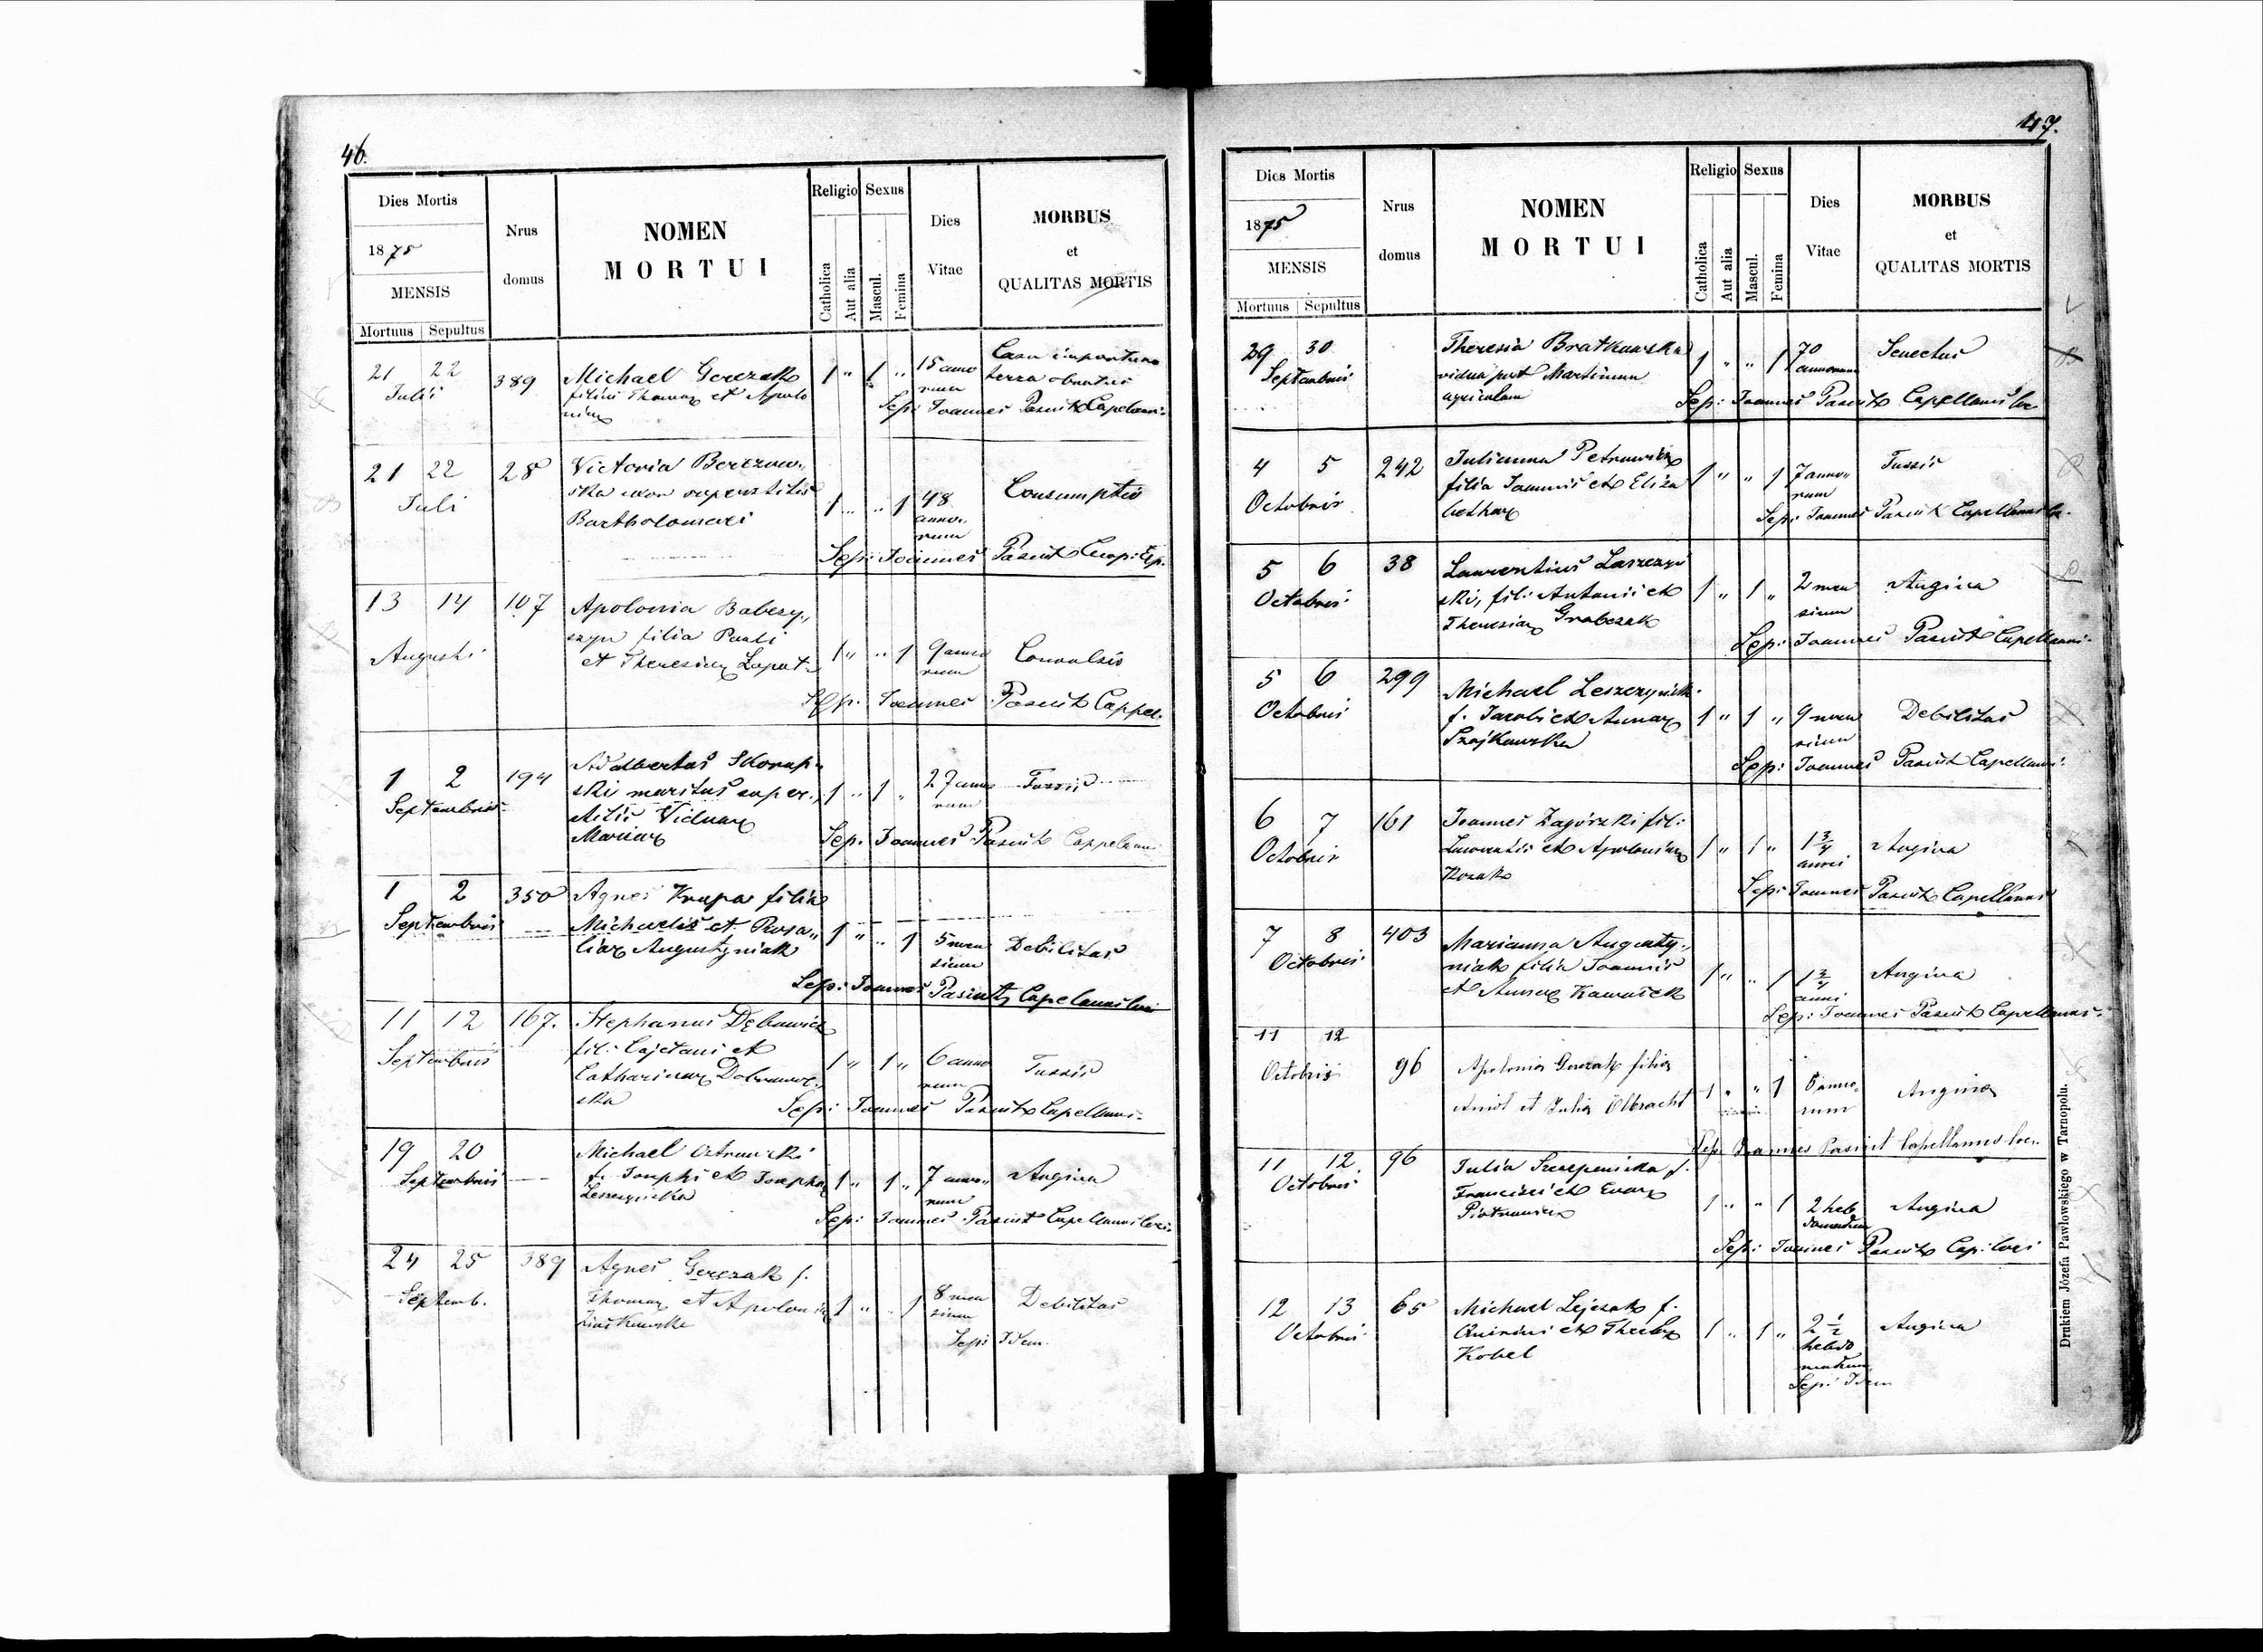 46.
Dies Mortis
1875
MENSIS
Mortuus Sepultus
Nrus
domus
NOMEN
MORTUI
Religio
Catholica
Aut alia
Sexus
Mascul.
Femina
Dies
Vitae
MORBUS
et
QUALITAS MORTIS
21 22
Julii
389
Michael Gerczak
filius Thomae et Apolo
niae
1 " 1 "
15 anno
rum
Casu importuno
terra obrutus
Sep: Joannes Pasiut Capelanus
21 22
Juli
28
Victoria Berezow„
ska uxor superstitis
Bartholomaei
1 " " 1
48
anno„
rum
Consumptio
Sep: Joannes Pasiut Cap: Exp.
13 14
Augusti
107
Apolonia Babczy„
szyn filia Pauli
et Theresiae Lopat
1 " " 1
9 anno
rum
Convulsio
Sep: Joannes Pasiut Cappel.
1 2
Septembris
194
Adalbertus Skorup„
ski maritus super„
stitis Viduae
Mariae
1 " 1 "
27 anno
rum
Tussis
Sep. Joannes Pasiut Cappelanus
1 2
Septembris
350
Agnes Krupa filia
Michaelis et Rosa„
liae Augustyniak
1 " " 1
5 men
sium
Debilitas
Sep: Joannes Pasiut Capelanus loci
11 12
Septembris
167.
Stephanus Dębowicz
fil: Cajetani et
Catharinae Dobrowol„
ska
1 " 1 "
6 anno
rum
Tussis
Sep: Joannes Pasiut Capellanus
19 20
Septembris
Michael Ostrowski
f. Josephi et Josephae
Leszczyńska
1 " 1 "
7 anno„
rum
Angina
Sep: Joannes Pasiut Capellanus loci.
24 25
Septemb.
389
Agnes Gerczak f.
Thomae et Apoloniae
1 " " 1
8 men
sium
Debilitas
Sep: Idem
47.
Dies Mortis
1875
MENSIS
Mortuus Sepultus
Nrus
domus
NOMEN
MORTUI
Religio
Catholica
Aut alia
Sexus
Mascul.
Femina
Dies
Vitae
MORBUS
et
QUALITAS MORTIS
29 30
Septembris
Theresia Bratkowska
vidua post Martinum
agricolam
1 " " 1
70
annorum
Senectus
Sep: Joannes Pasiut Capellanus loc
4 5
Octobris
242
Julianna Petrowicz
filia Joannis et Eliza
bethae
1 " " 1
7 anno„
rum
Tussis
Sep: Joannes Pasiut Capellanus
5 6
Octobris
38
Laurentius Laszczyń
ski, fil: Antonii et
Theresiae Grabczak
1 " 1 "
2 men
sium
Angina
Sep: Joannes Pasiut Capellanus
5 6
Octobris
299
Michael Leszczyński
f. Jacobi et Annae
Szajkowska
1 " 1 "
9 men
sium
Debilitas
Sep: Joannes Pasiut Capellanus
6 7
Octobris
161
Joannes Zagórski fil:
Laurentii et Apoloniae
Kozak
1 " 1 "
1 3/4
anni
Angina
Sep: Joannes Pasiut Capellanus
7 8
Octobris
403
Marianna Augusty„
niak filia Joannis
et Annae
1 " " 1
1 3/4
anni
Angina
Sep: Joannes Pasiut Capellanus
11 12
Octobris
96
Apolonia Gerczak filia
et Julia Olbracht
1 " " 1
6 anno„
rum
Angina
Sep Joannes Pasiut Capellanus loc.
11 12
Octobris
96
Julia Szczepanicka f.
Francisci et Evae
Piotrowicz
1 " " 1
2 heb
domadum
Angina
Sep: Joannes Pasiut Cap: loci
12 13
Octobris
65
Michael Lejczak f.
Quirini et Theclae
Kobel
1 " 1 "
2 1/2
hebdo
madum
Angina
Sep: Idem
Drukiem Józefa Pawlowskiego w Tarnopolu.